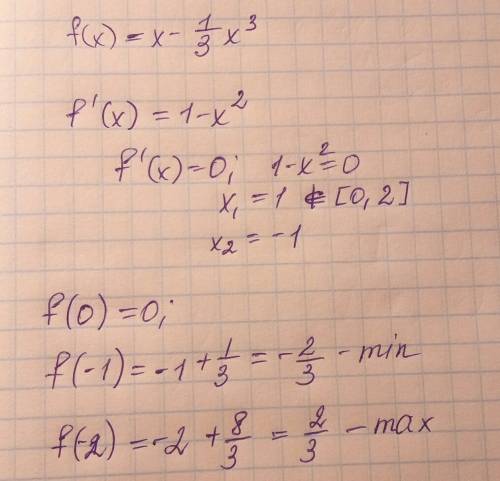 f(x) = x - 1/3 x³
f'(x) = 1 - x²
f'(x) = 0; 1 - x² = 0
x₁ = 1 ∈ [0, 2]
x₂ = -1
f(0) = 0;
f(-1) = -1 + 1/3 = -2/3 - min
f(-2) = -2 + 8/3 = 2/3 - max